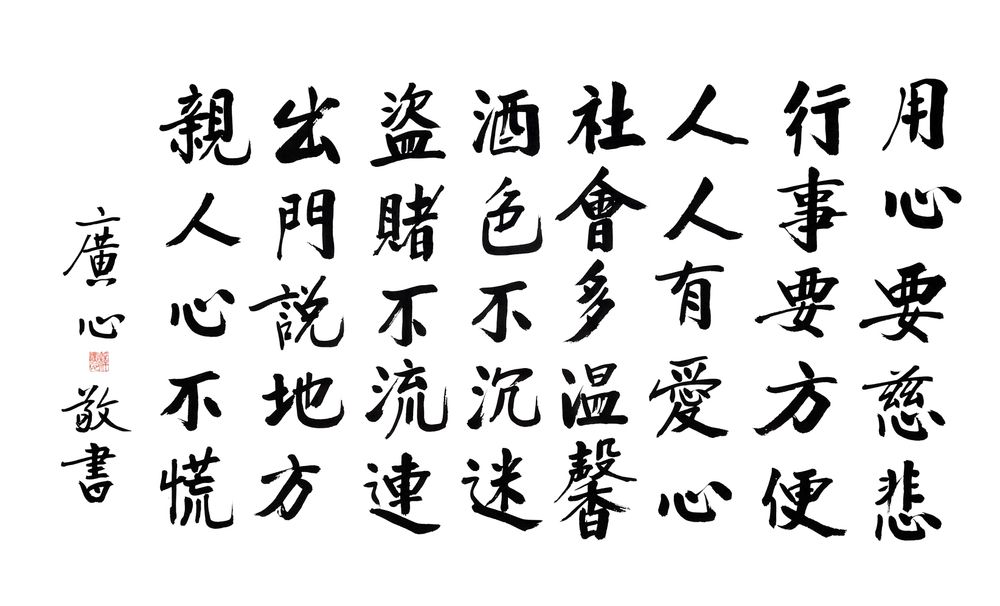 用心要慈悲
行事要方便
人人有愛心
社會多温馨
酒色不沉迷
盜賭不流連
出門說地方
親人心不慌
廣心敬書